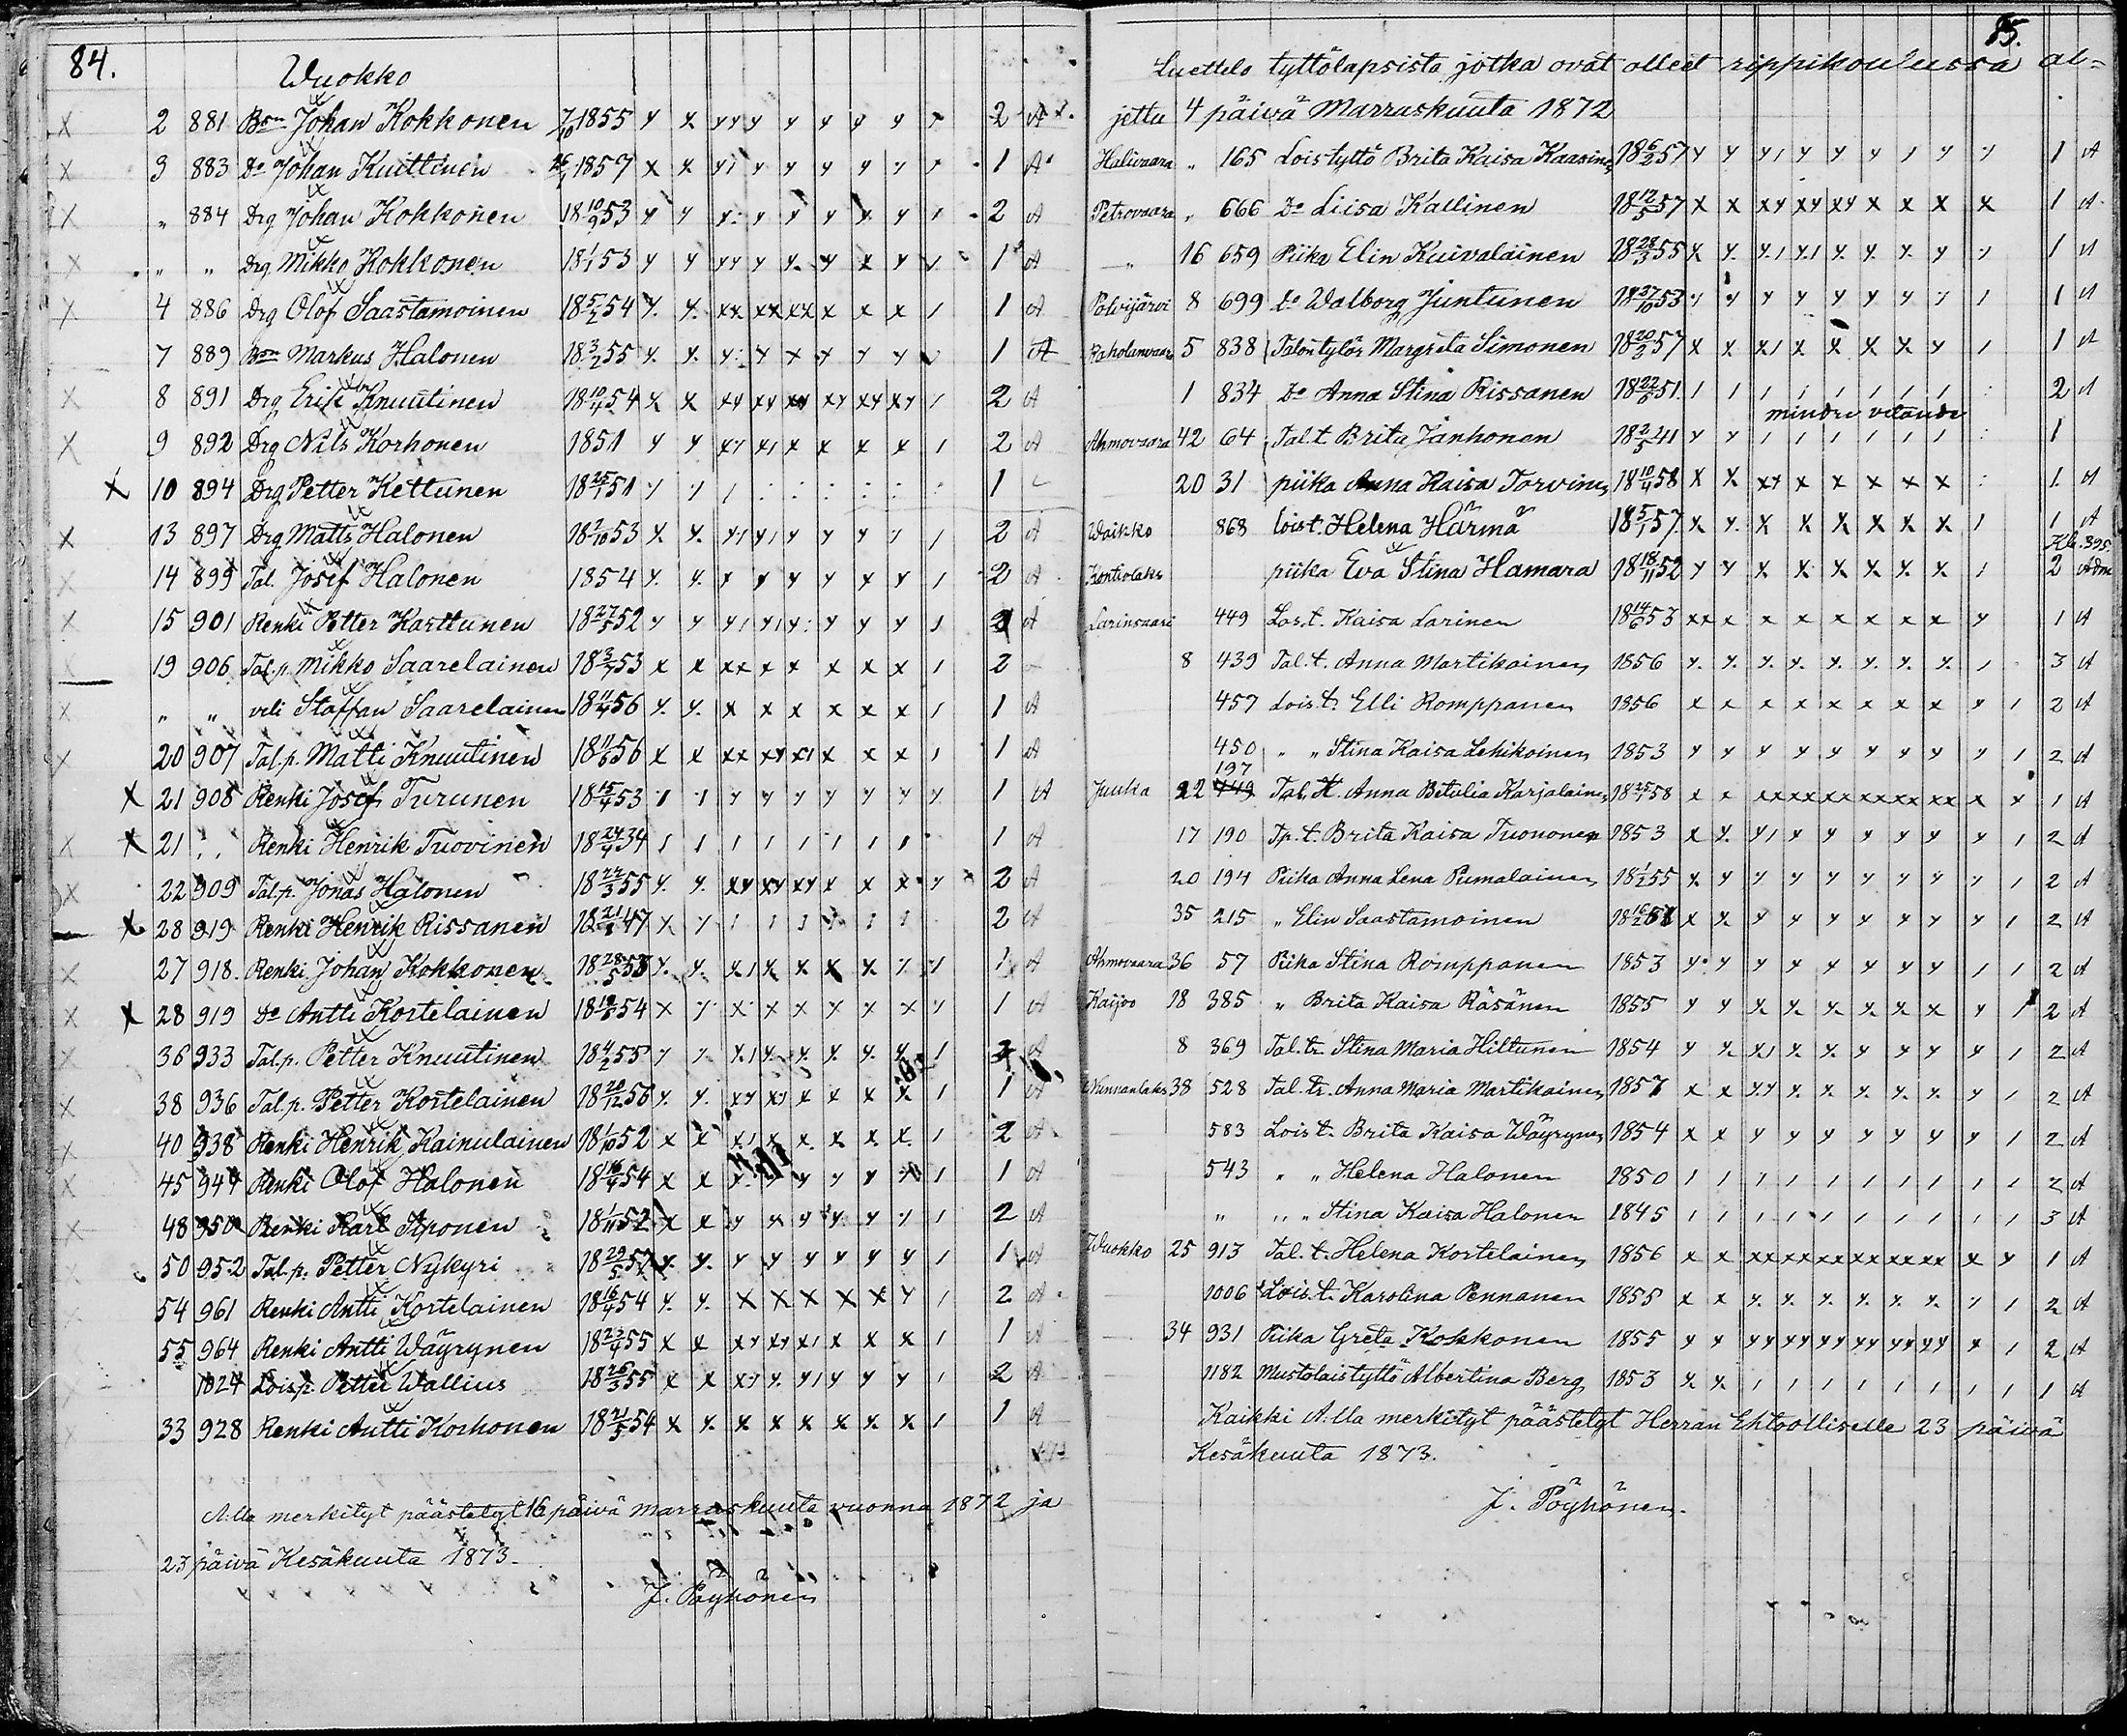 84.
Wuokko
2 881 Bsn Johan Kokkonen 7/10 1855 2 A
3 883 Do Johan Kuittinen 26/1 1857 1 A
" 884 Drg Johan Kokkonen 18 10/9 53 2 A
" " Drg Mikko Kokkonen 18 1/1 53 1 A
4 886 Drg Olof Saastamoinen 18 5/2 54 1 A
7 889 Bsn Markus Halonen 18 3/2 55 1 A
8 891 Drg Erik Knuutinen 18 10/4 54 2 A
9 892 Drg Nils Korhonen 1851 2 A
10 894 Drg Petter Kettunen 18 25/1 51 1
13 897 Drg Matts Halonen 18 2/10 53 2 A
14 899 Tal. Josef Halonen 1854 2 A
15 901 Renki Petter Karttunen 18 27/5 52 2 A
19 906 Tal.p. Mikko Saarelainen 18 3/7 53 2
" " veli Staffan Saarelainen 18 11/4 56 1 A
20 907 Tal.p. Matti Knuutinen 18 11/6 56 1 A
21 908 Renki Josef Turunen 18 15/4 53 1 A
21 " Renki Henrik Tuovinen 18 24/4 34 1 A
22 909 Tal.p. Jonas Halonen 18 22/3 55 2 A
28 919 Renki Henrik Rissanen 18 21/8 47 2 A
27 918. Renki Johan Kokkonen 18 28/5 53 1 A
28 919 Do Antti Kortelainen 54 1 A
36 933 Tal.p. Petter Knuutinen 18 4/2 55 A
38 936 Tal.p. Petter Kortelainen 18 20/12 56 1 A
40 938 Renki Henrik Kainulainen 18 1/10 52 2 A
45 944 Renki Olof Halonen 18 16/4 54 1 A
48 950 Renki Karl Aponen 18 1/11 52 2 A
50 952 Tal.p. Petter Nykyri 18 29/5 57 1 A
54 961 Renki Antti Kortelainen 18 16/4 54 2 A
55 964 Renki Antti Wäyrynen 18 23/4 55 1 A
1024 Lois p. Petter Wallius 18 26/3 55 2 A
33 928 Renki Antti Korhonen 18 21/5 54 1 A
A:lla merkityt päästetyt 16 päivä marraskuuta vuonna 1872 ja
23 päivä Kesäkuuta 1873.
J. Pöyhönen
85.
Luettelo tyttölapsista jotka ovat olleet rippikoulussa al=
jettu 4 päivä Marraskuuta 1872
Halivaara " 165 Lois tyttö Brita Kaisa Kaasinen 18 6/2 57 1 A
Petrovaara " 666 Do Liisa Kallinen 18 12/5 57 1 A
" 16 659 Piika Elin Kuivalainen 18 28/3 55 1 A
Polvijärvi 8 699 Do Walborg Juntunen 18 27/10 53 1 A
Raholanvaara 5 838 Talon tytör Margreta Simonen 18 20/2 57 1 A
1 834 Do Anna Stina Rissanen 18 22/6 51 2 A
mindre vetande
Ahmovaara 42 64 Tal.t. Brita Janhonen 18 2/5 41 1
20 31 piika Anna Kaisa Torvinen 18 10/4 58 1 A
Waikko 868 lois t. Helena Härmä 18 5/1 57 1 A
Kb. 395.
Kontiolaks piika Eva Stina Hamara 18 18/11 52 2 Adm
Larinsaari 449 Lois.t. Kaisa Larinen 18 14/6 53 1 A
8 439 Tal.t. Anna Martikainen 1856 3 A
457 Lois.t. Elli Romppanen 1856 2 A
450 " " Stina Kaisa Lehikoinen 1853 2 A
197
Juuka 22 449 Tal. tt. Anna Betulia Karjalainen 18 25/1 58 1 A
17 190 Tp.t. Brita Kaisa Tuononen 1853 2 A
20 194 Piika Anna Lena Pumalainen 18 1/2 55 2 A
35 215 " Elin Saastamoinen 2 A
Ahmovaara 36 57 Piika Stina Romppanen 1853 2 A
Kaijoo 18 385 " Brita Kaisa Räsänen 1855 2 A
8 369 Tal.tr. Stina Maria Hiltunen 1854 2 A
Nunnanlaks 38 528 Tal.tr. Anna Maria Martikainen 1857 2 A
583 Lois t. Brita Kaisa Wäyrynen 1854 2 A
543 " " Helena Halonen 1850 2 A
" " " Stina Kaisa Halonen 1845 3 A
Wuokko 25 913 Tal. t. Helena Kortelainen 1856 1 A
1006 Lois.t. Karolina Pennanen 1855 2 A
34 931 Piika Greta Kokkonen 1855 2 A
1182 Mustolais tyttö Albertina Berg 1853 1 A
Kaikki A:lla merkityt päästetyt Herran Ehtoolliselle 23 päivä
Kesäkuuta 1873.
J. Pöyhönen.